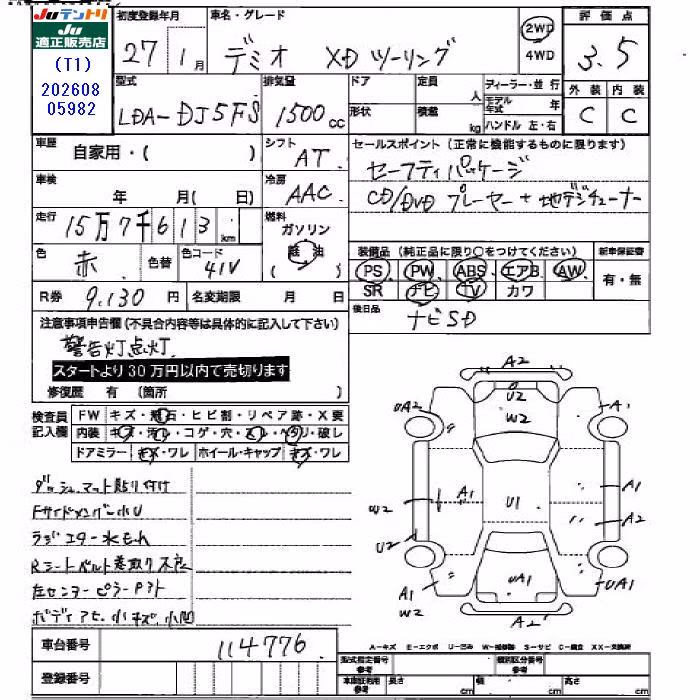 Juテントリ
Ju
適正販売店
(T1)
202608
05982
初度登録年月
27年 1月
車名・グレード
デミオ XDツーリング
2WD
4WD
評価点
3.5
型式
LDA-DJ5FS
排気量
1500cc
ドア
形状
定員
人
積載
kg
ディーラー・並行
モデル年式 年
ハンドル 左・右
外装 内装
C C
車歴
自家用・( )
シフト
AT
セールスポイント(正常に機能するものに限ります)
セーフティパッケージ
CD/DVDプレーヤー+地デジチューナー
車検
年 月( 日)
冷房
AAC
走行
15万7千613km
燃料
ガソリン
軽油
色
赤
色替
色コード
41V
装備品(純正品に限り○をつけてください)
新車保証書
PS PW ABS エアB AW
SR ナビ TV カワ
有・無
R券 9,130円
名変期限 月 日
後日品
ナビSD
注意事項申告欄(不具合内容等は具体的に記入して下さい)
警告灯点灯
スタートより30万円以内で売切ります
修復歴 有 (箇所 )
検査員記入欄
FW キズ・飛石・ヒビ割・リペア跡・X要
内装 キズ・汚レ・コゲ・穴・スレ・ヘタリ・破レ
ドアミラー キズ・ワレ ホイール・キャップ キズ・ワレ
ダッシュマット貼り付け
Fサイドメンバー小U
ラジエター水もれ
Rシートベルト巻取り不良
左センターピラーP跡
ボディアセ、小キズ、小凹
A2
U2
W2
UA2
A1
A1
U1
W2
U2
A1
A2
A1
W2
UA1
UA1
A2
車台番号
114776
登録番号
A-キズ E-エクボ U-凹み W-補修跡 S-サビ C-腐食 XX-交換済
型式指定番号 参考
類別区分番号 参考
車庫証明用 参考 長さ cm 幅 cm 高さ cm